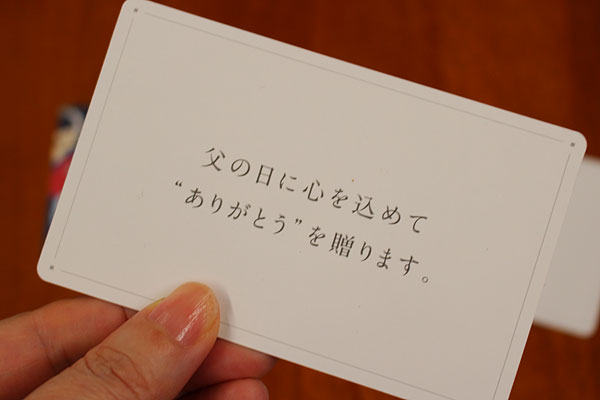 父の日に心を込めて
“ありがとう”を贈ります。